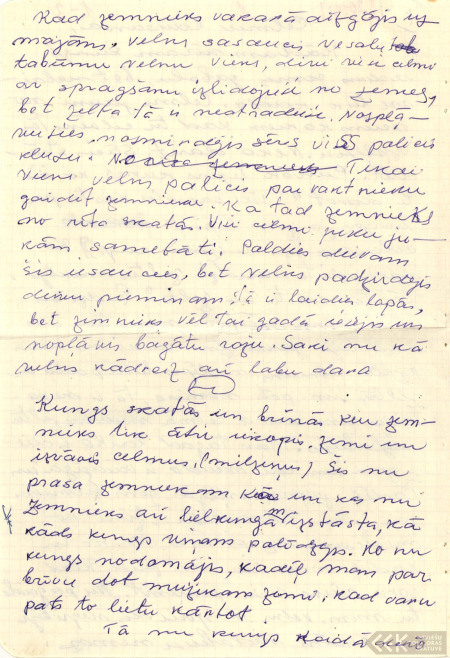 Kad zemnieks vakarā aizgājis uz
mājām, velns sasaucis vesalu
tabūnu velnu viens, divi visi celmi
ar spragšanu izlidojuši no zemes,
bet zelta tā i neatraduši. Nosplā-
vušies, nosmirdejis sērs viss palicis
klusu. Tikai
viens velns palicis par vant nieku
gaidīt zemnieku. Ka tad zemnieks
no rīta skatās. Visi celmi juku ju-
kām samētāti. Paldies dievam
šis iesaucies, bet velns padzirdejis
dievu pieminam tā i laidies lapās,
bet zimnieks vēl tai gadā iesējis un
noplāvis bagātu ražu. Saki nu kā
velns kādreiz arī labu dara
Kungs skatās un brīnās kur zem-
nieks tik ātri uzkopis zemi un
izvācis celmus, (milzeņus) Šis nu
prasa zemniekam kā un kas nu
Zemnieks arī lielkungam izstāsta, kā
kāds kungs viņam palīdzejs. Ko nu
kungs nodomājis, kadēļ man par
brīvu dot mužikam zemi, kad varu
pats to lietu kārtot.
Tā nu kungs